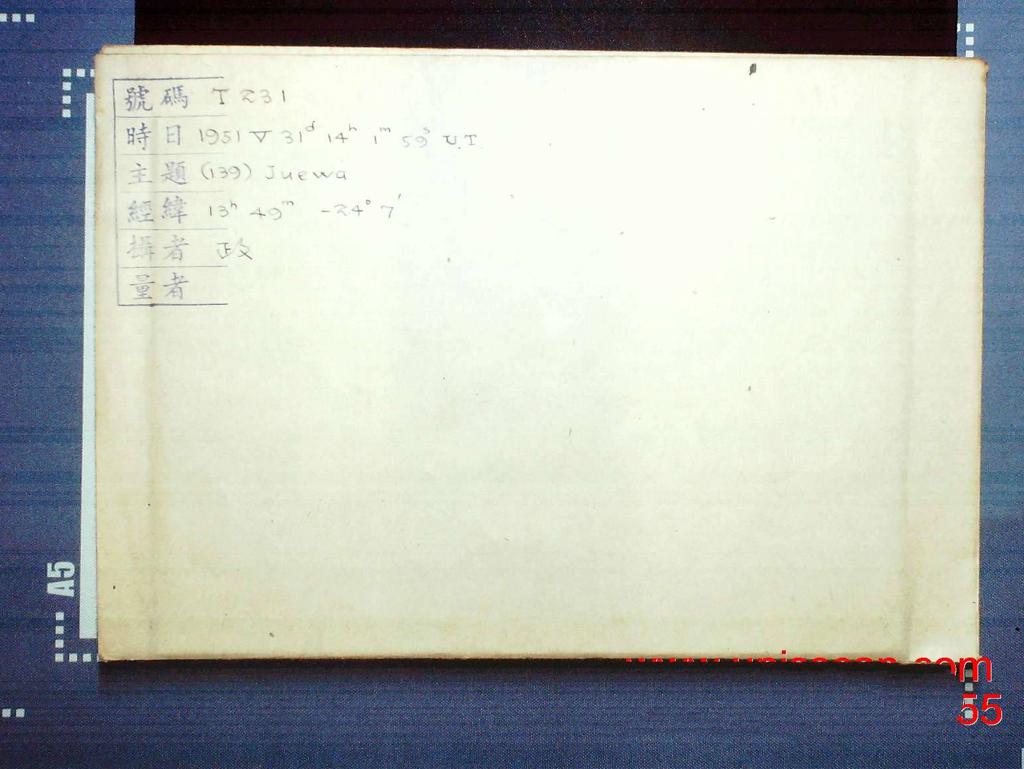 號碼 T 231
時日 1951 V 31ᵈ 14ʰ 1ᵐ 59ˢ U.T
主題 (139) Juewa
經緯 13ʰ 49ᵐ -24° 7′
攝者 政
量者
A5
55